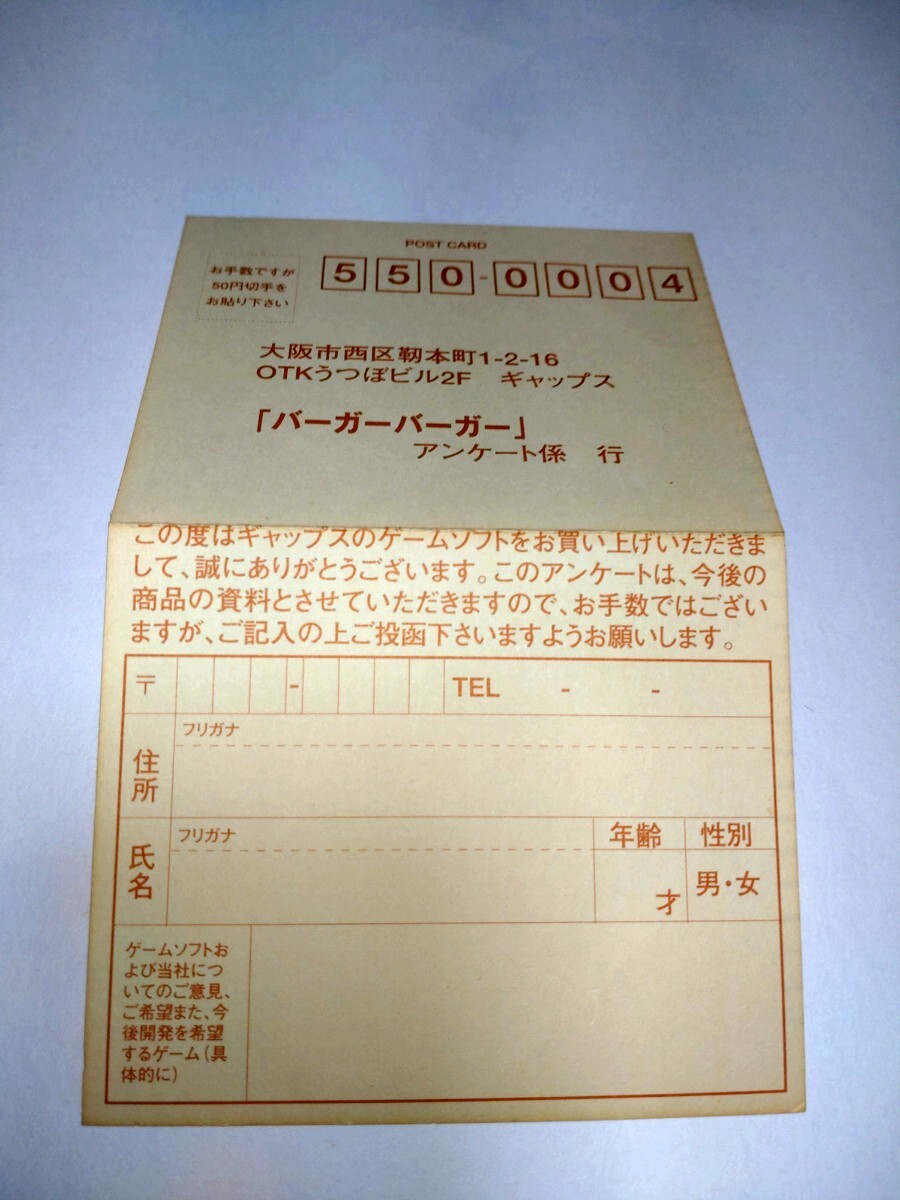 POST CARD
お手数ですが
50円切手を
お貼り下さい
550-0004
大阪市西区靱本町1-2-16
OTKうつぼビル2F ギャップス
「バーガーバーガー」
アンケート係 行
この度はギャップスのゲームソフトをお買い上げいただきま
して、誠にありがとうございます。このアンケートは、今後の
商品の資料とさせていただきますので、お手数ではござい
ますが、ご記入の上ご投函下さいますようお願いします。
〒 - TEL - -
住所
フリガナ
氏名
フリガナ
年齢
才
性別
男・女
ゲームソフトお
よび当社につ
いてのご意見、
ご希望また、今
後開発を希望
するゲーム(具
体的に)